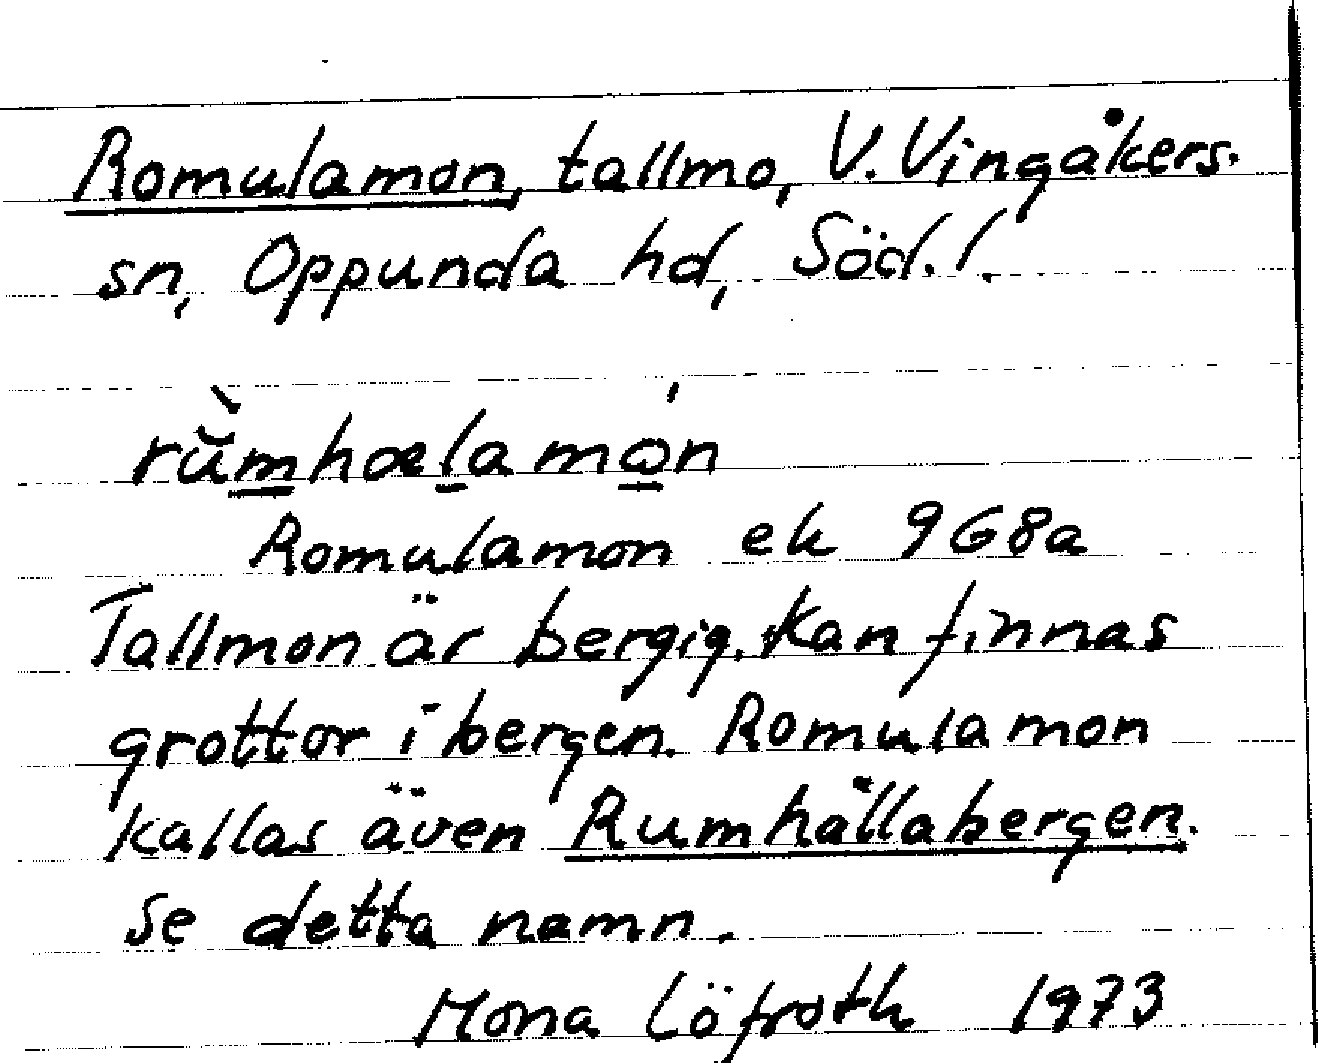 Romulamon, tallmo, V. Vingåkers.
sn, Oppunda hd, Söd. l.
rùmhœlamón
Romulamon ek 9G8a
Tallmon är bergig. Kan finnas
grottor i bergen. Romulamon
kallas även Rumhällabergen.
Se detta namn.
Mona Löfroth 1973